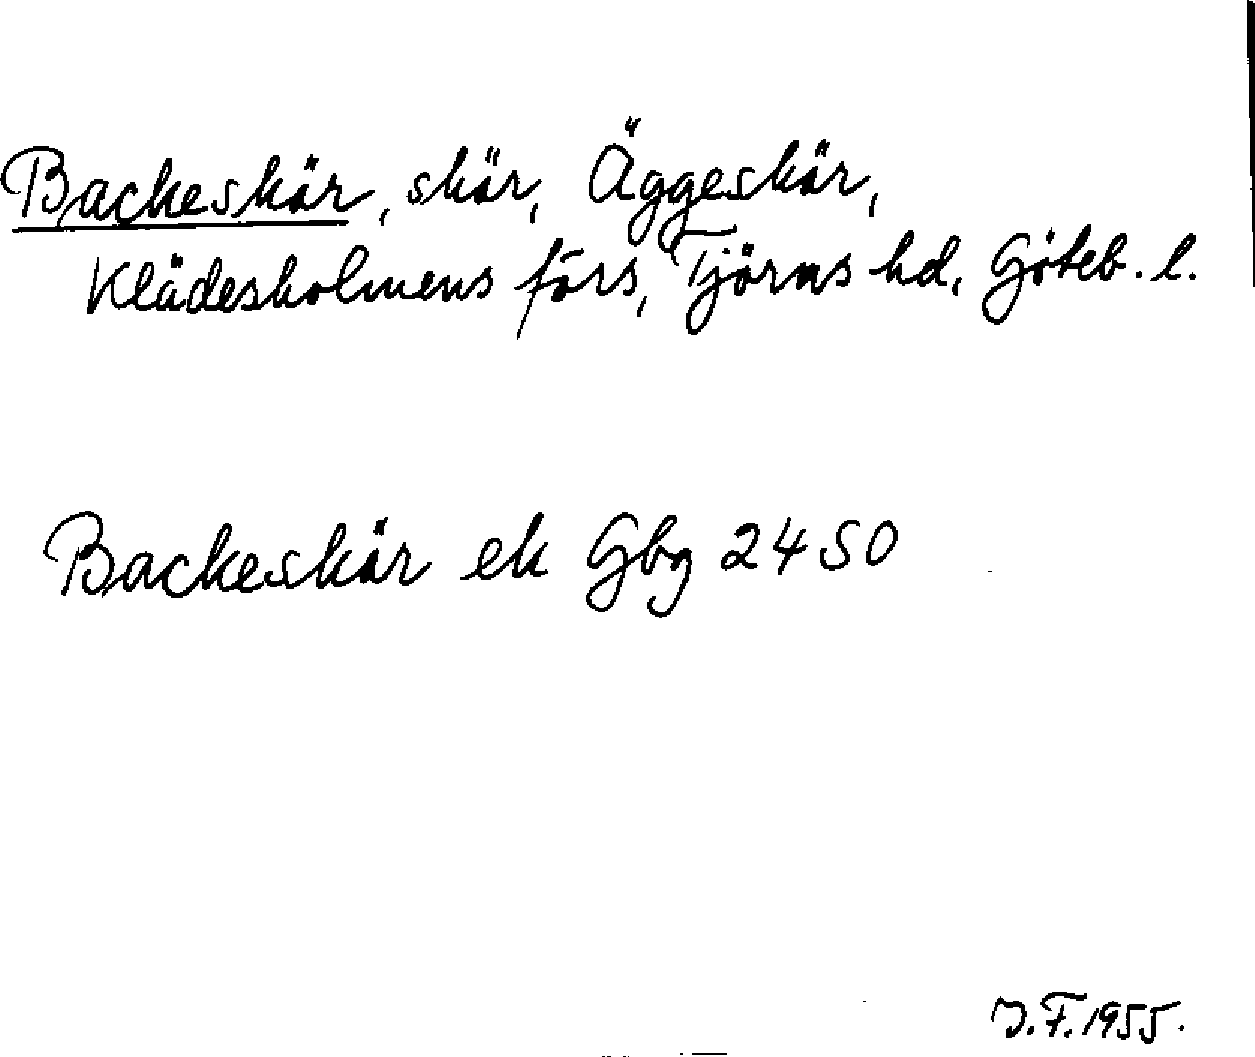 Backeskär, skär, Äggeskär,
Klädesholmens förs, Tjörns hd, Göteb. l.
Backeskär ek Gbg 2450
J.F. 1955.